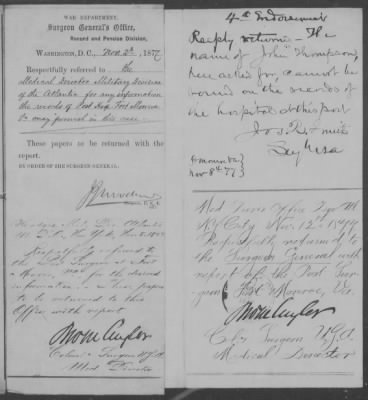 WAR DEPARTMENT,
Surgeon General's Office,
Record and Pension Division,
WASHINGTON, D.C., Nov. 2d, 1877
Respectfully referred to the
Medical Director Military Division
of the Atlantic for any information
the records of Post Hosp. Fort Monroe
Va. may furnish in this case
These papers to be returned with the
report.
BY ORDER OF THE SURGEON GENERAL:
Respectfully referred
to the Post Surgeon at Fort
Monroe, for the desired
information. These papers
to be returned to this
Office with report
Jno M Cuyler
Colonel & Surgeon U.S.A.
Med Director
4th Endorsement
Respy return The
name of John Thompson,
here asked for, cannot be
found on the records of
the hospital at this post
Jos. R. Smith
Surg USA
Ft Monroe Va
Nov 8 77
Med Director's Office
N.Y. City Nov. 12th 1877
Respectfully returned to
the Surgeon General with
report of the Post Sur-
geon Fort Monroe, Va.
Jno M Cuyler
Col & Surgeon U.S.A.
Medical Director